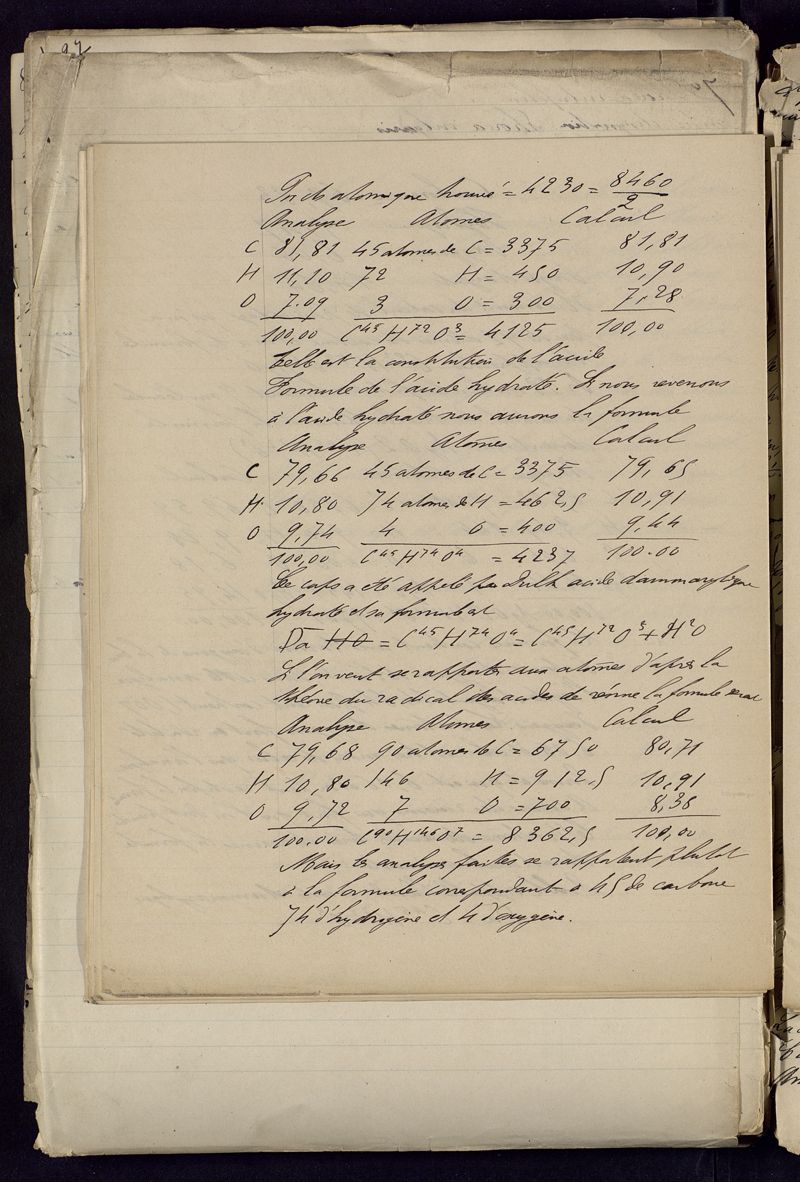 97
Poids atomique trouvé = 4230 = 8460/2
Analyse Atomes Calcul
C 81,81 45 atomes de C = 3375 81,81
H 11,10 72 H = 450 10,90
O 7.09 3 O = 300 7,28
100,00 C⁴⁵ H⁷² O³ = 4125 100,00
Telle est la constitution de l'acide
Formule de l'acide hydraté. Si nous revenons
à l'acide hydraté nous aurons la formule
Analyse Atomes Calcul
C 79,66 45 atomes de C = 3375 79,65
H. 10,80 74 atomes de H = 462,5 10,91
O 9,74 4 O = 400 9,44
100,00 C⁴⁵ H⁷⁴ O⁴ = 4237 100.00
Ce corps a été appelé par Dulk acide dammarylique
hydraté et sa formule est
Da HO = C⁴⁵ H⁷⁴ O⁴ = C⁴⁵ H⁷² O³ + H² O
Si l'on veut se rapporter aux atomes d'après la
théorie du radical des acides de résine la formule serait
Analyse Atomes Calcul
C 79,68 90 atomes de C = 6750 80,71
H 10,80 146 H = 912,5 10,91
O 9,72 7 O = 700 8,38
100.00 C⁹⁰ H¹⁴⁶ O⁷ = 8362,5 100,00
Mais les analyses faites se rapportent plutôt
à la formule correspondant à 45 de carbone
74 d'hydrogène et 4 d'oxygène.